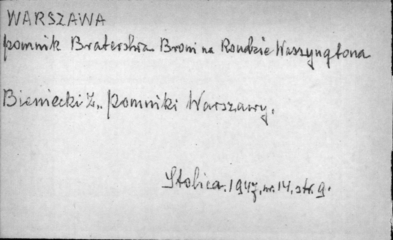 WARSZAWA
pomnik Braterstwa Broni na Rondzie Waszyngtona
Bieniecki Z., Pomniki Warszawy.
Stolica. 1947, nr. 14, str. 9.